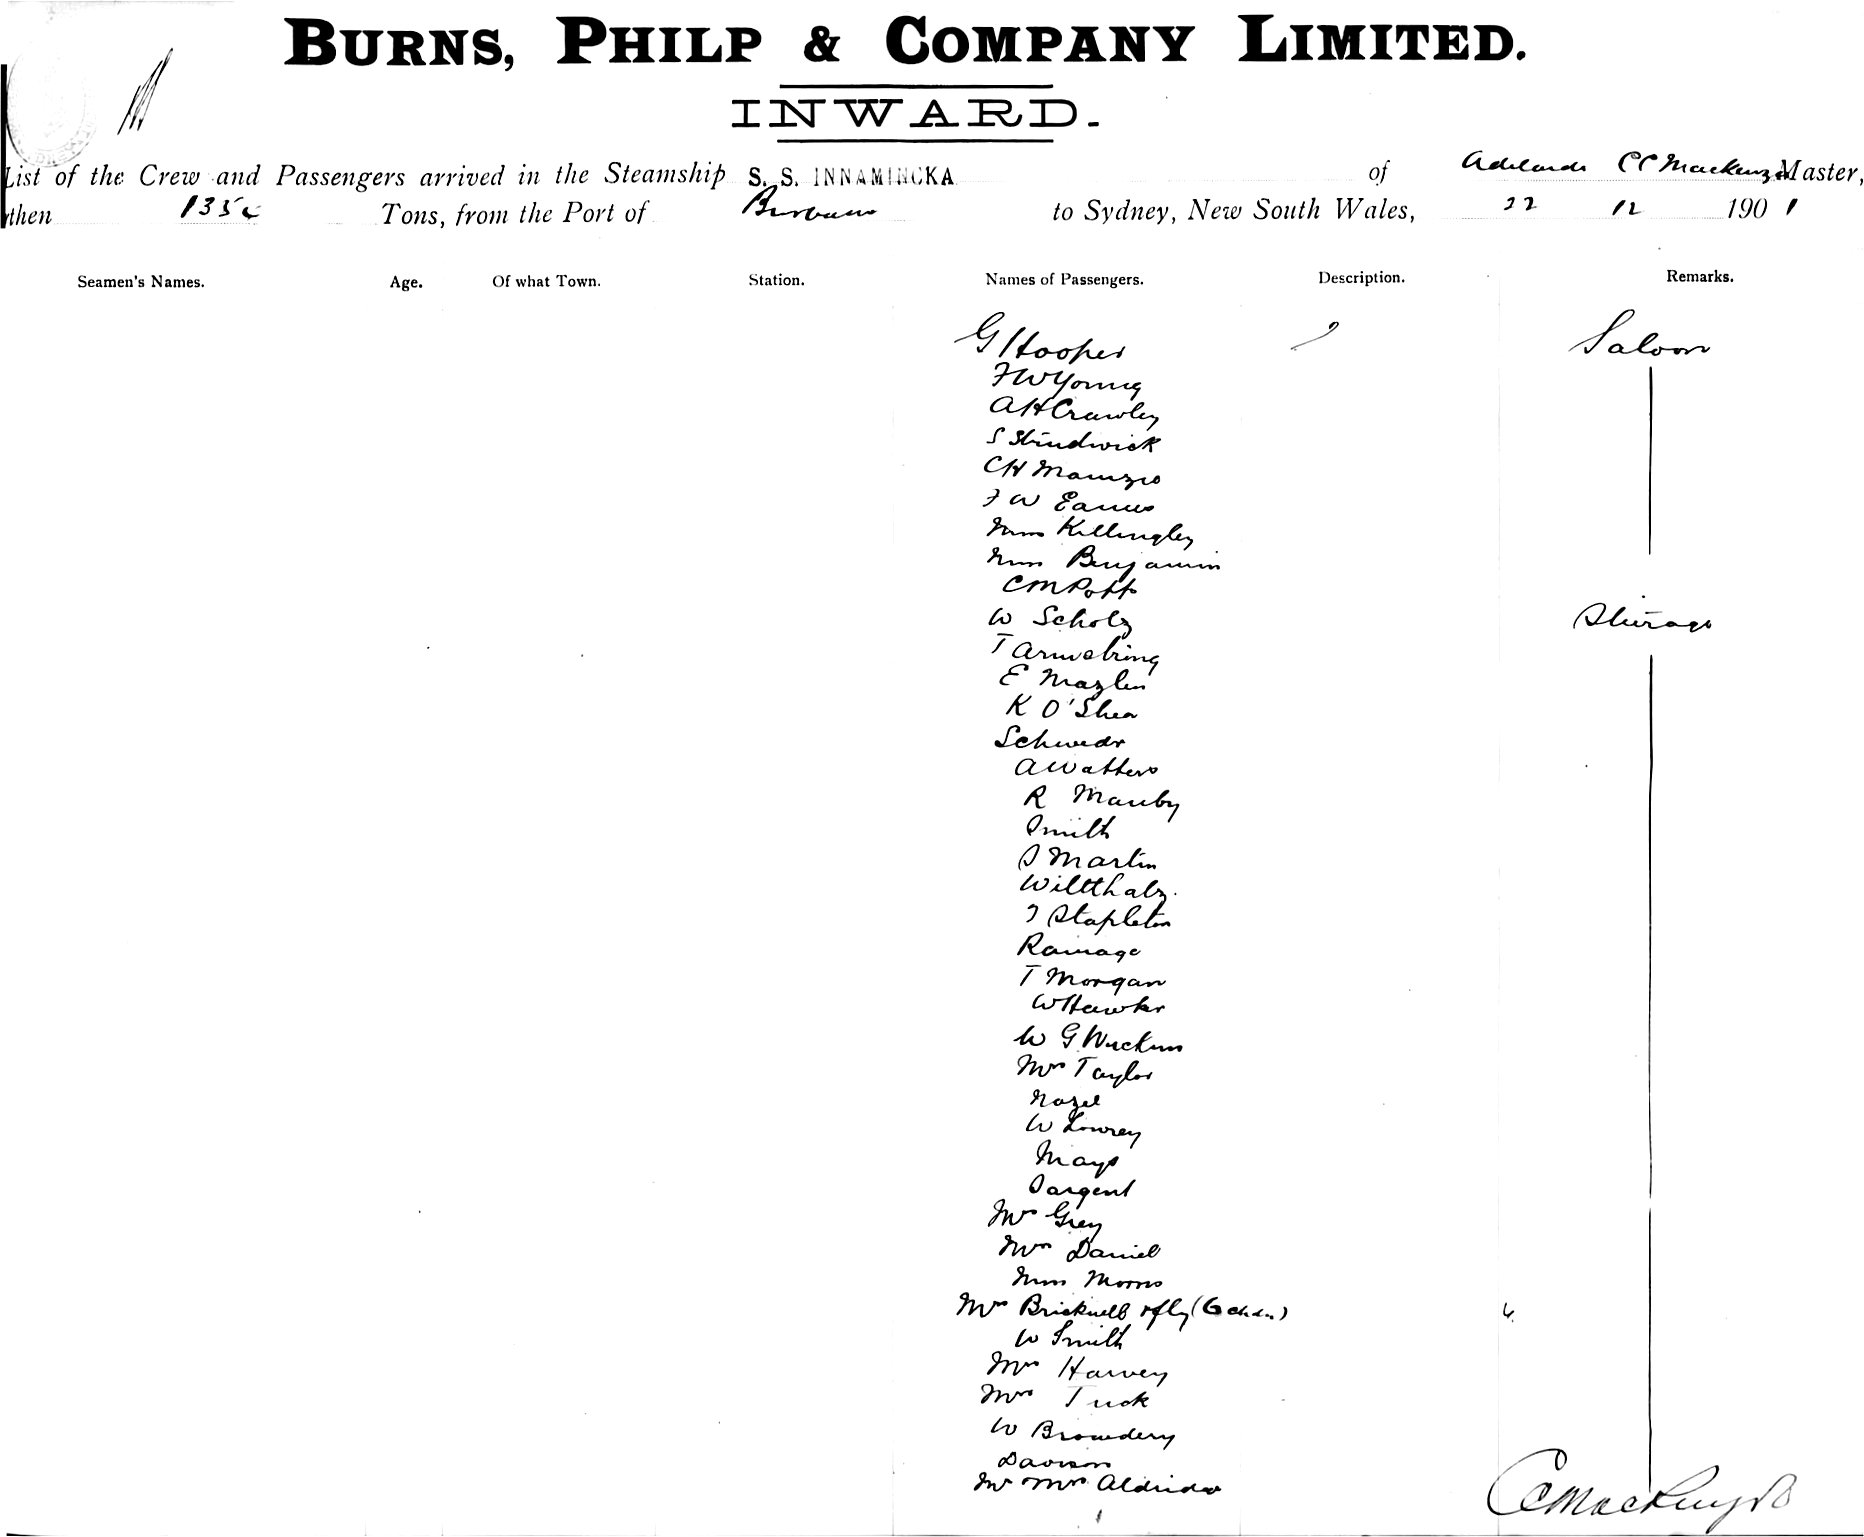 BURNS, PHILP & COMPANY LIMITED.
INWARD.
List of the Crew and Passengers arrived in the Steamship S. S. INNAMINCKA of Adelaide CC Mackenzie Master,
then 135 Tons, from the Port of Brisbane to Sydney, New South Wales, 22 12 1901
Seamen's Names. Age. Of what Town. Station. Names of Passengers. Description. Remarks.
G Hooper Saloon
FW Young
AH Crawley
S Strudwick
CH
FW Eames
Miss Killingley
Miss Benjamin
CM Potts
W Scholz Steerage
T Armstrong
E Mazlin
K O'Shea
A Watters
R Manby
Smith
S Martin
Stapleton
Ramage
T Morgan
W Hawker
W G
Mrs Taylor
Nazel
W Lowrey
Mays
Sargent
Mrs Grey
Mrs Daniel
Miss Morris
Mrs Bricknell & fly (6 chdn)
W Smith
Mrs Harvey
Mrs Tuck
W
Davison
Mr & Mrs
CC Mackenzie